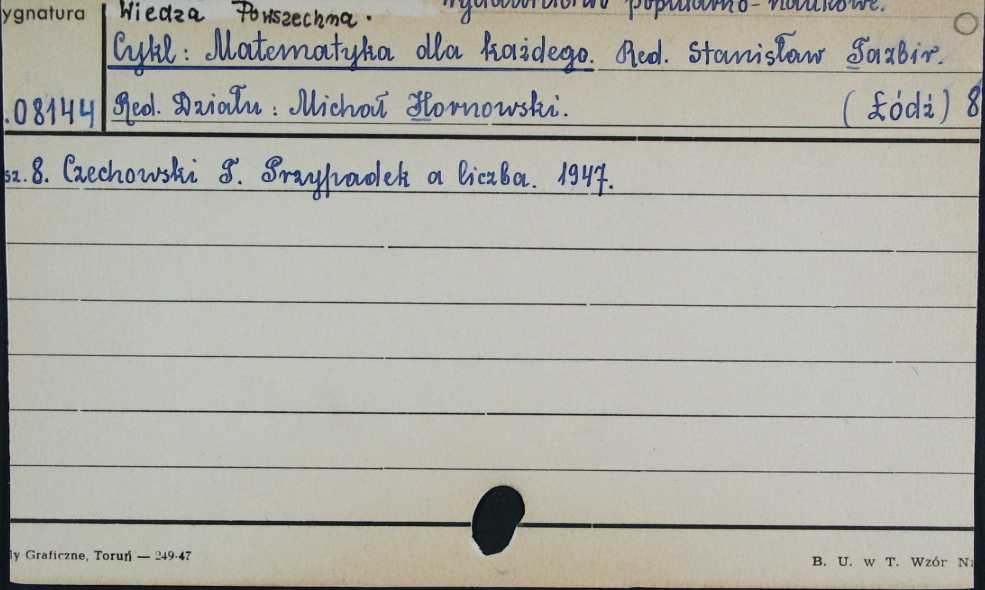 ygnatura Wiedza Powszechna. Wydawnictwo popularno-naukowe.
Cykl: Matematyka dla każdego. Red. Stanisław Tazbir.
.08144 Red. Działu: Michał Hornowski. (Łódź) 8
sz. 8. Czechowski T. Przypadek a liczba. 1947.
ly Graficzne, Toruń — 249-47 B. U. w T. Wzór N